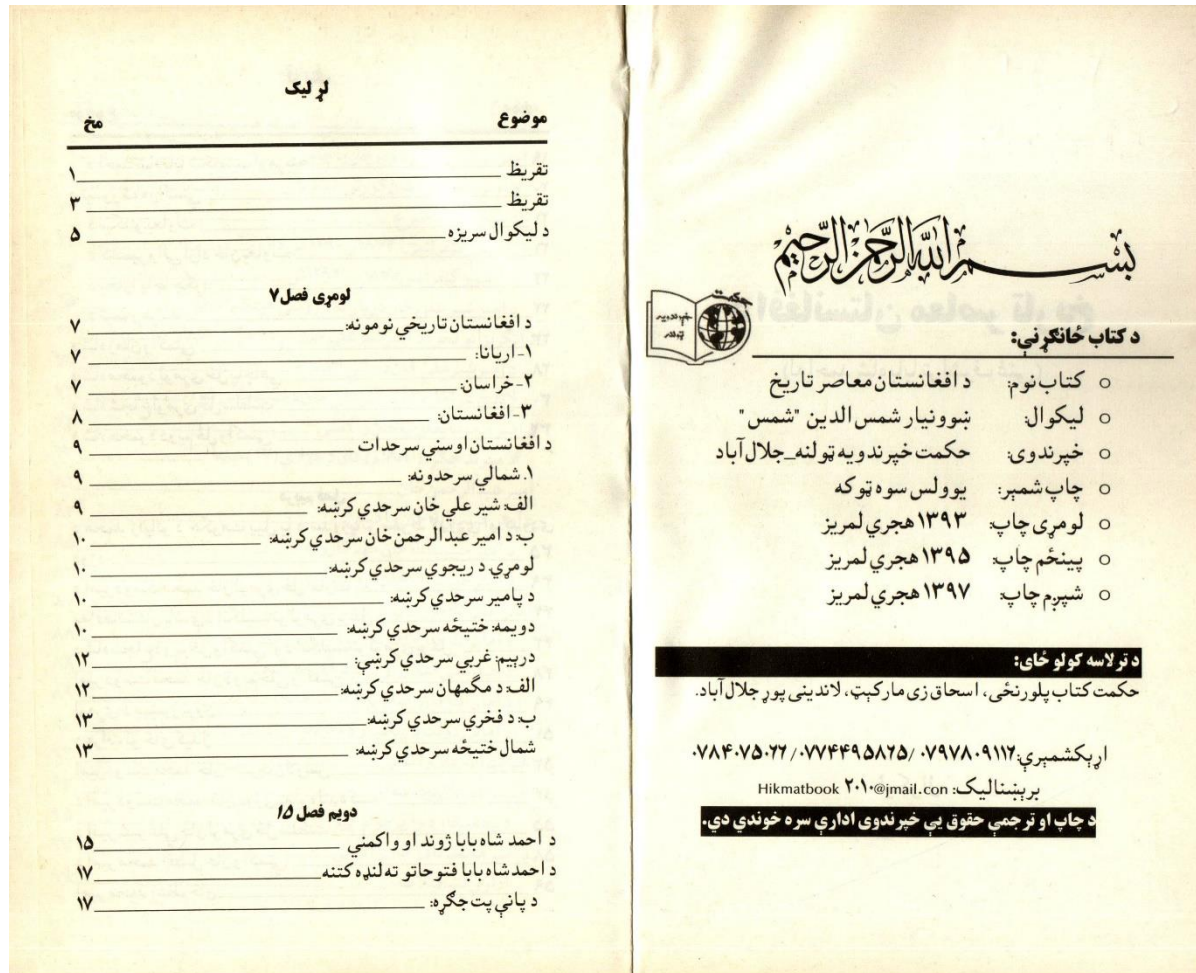 بسم الله الرحمن الرحیم
حکمت
خپرندویه
ټولنه
د کتاب ځانګړنې:
○ کتاب نوم: د افغانستان معاصر تاریخ
○ لیکوال: ښوونیار شمس الدین "شمس"
○ خپرندوی: حکمت خپرندویه ټولنه_جلال آباد
○ چاپ شمېر: یوولس سوه ټوکه
○ لومړی چاپ: ۱۳۹۳ هجري لمریز
○ پینځم چاپ: ۱۳۹۵ هجري لمریز
○ شپږم چاپ: ۱۳۹۷ هجري لمریز
د ترلاسه کولو ځای:
حکمت کتاب پلورنځی، اسحاق زی مارکېټ، لاندینی پوړ جلال آباد.
اړیکشمېرې: ۰۷۹۷۸۰۹۱۱۲/ ۰۷۷۴۴۹۵۸۲۵/ ۰۷۸۴۰۷۵۰۲۲
برېښنالیک: Hikmatbook ۲۰۱۰@jmail.con
د چاپ او ترجمې حقوق یې خپرندوی ادارې سره خوندي دي.
لړ لیک
موضوع مخ
تقریظ ۱
تقریظ ۳
د لیکوال سریزه ۵
لومړی فصل ۷
د افغانستان تاریخي نومونه: ۷
۱-اریانا: ۷
۲-خراسان: ۷
۳-افغانستان: ۸
د افغانستان اوسني سرحدات ۹
۱. شمالي سرحدونه: ۹
الف: شیر علي خان سرحدي کرښه: ۹
ب: د امیر عبدالرحمن خان سرحدي کرښه: ۱۰
لومړي: د ریجوي سرحدي کرښه: ۱۰
د پامیر سرحدي کرښه: ۱۰
دویمه: ختیځه سرحدي کرښه: ۱۰
درېیم: غربي سرحدي کرښې: ۱۲
الف: د مګمهان سرحدي کرښه: ۱۲
ب: د فخري سرحدي کرښه: ۱۳
شمال ختیځه سرحدي کرښه: ۱۳
دویم فصل ۱۵
د احمد شاه بابا ژوند او واکمني ۱۵
د احمد شاه بابا فتوحاتو ته لنډه کتنه ۱۷
د پاني پت جګړه: ۱۷